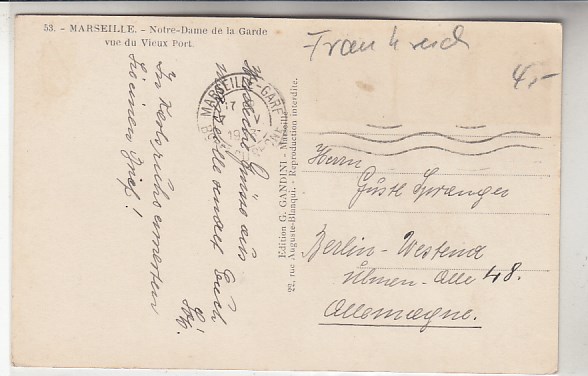 53. - MARSEILLE. - Notre-Dame de la Garde
vue du Vieux Port.
Frankreich
4,-
MARSEILLE-GARE
17
V
19
Edition G. GANDINI - Marseille
22, rue Auguste-Blanqui. - Reproduction interdite.
Herrn
Güstl Spranger
Berlin-Westend
Ulmen-Alle 48.
Allemagne.
Herzliche Grüße aus
Marseille sendet Euch
In Karlsruhe erwarten
wir einen Brief!